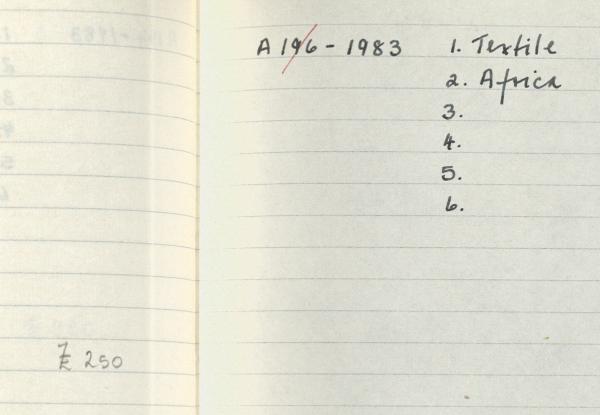 A 196 - 1983 1. Textile
2. Africa
3.
4.
5.
6.
250